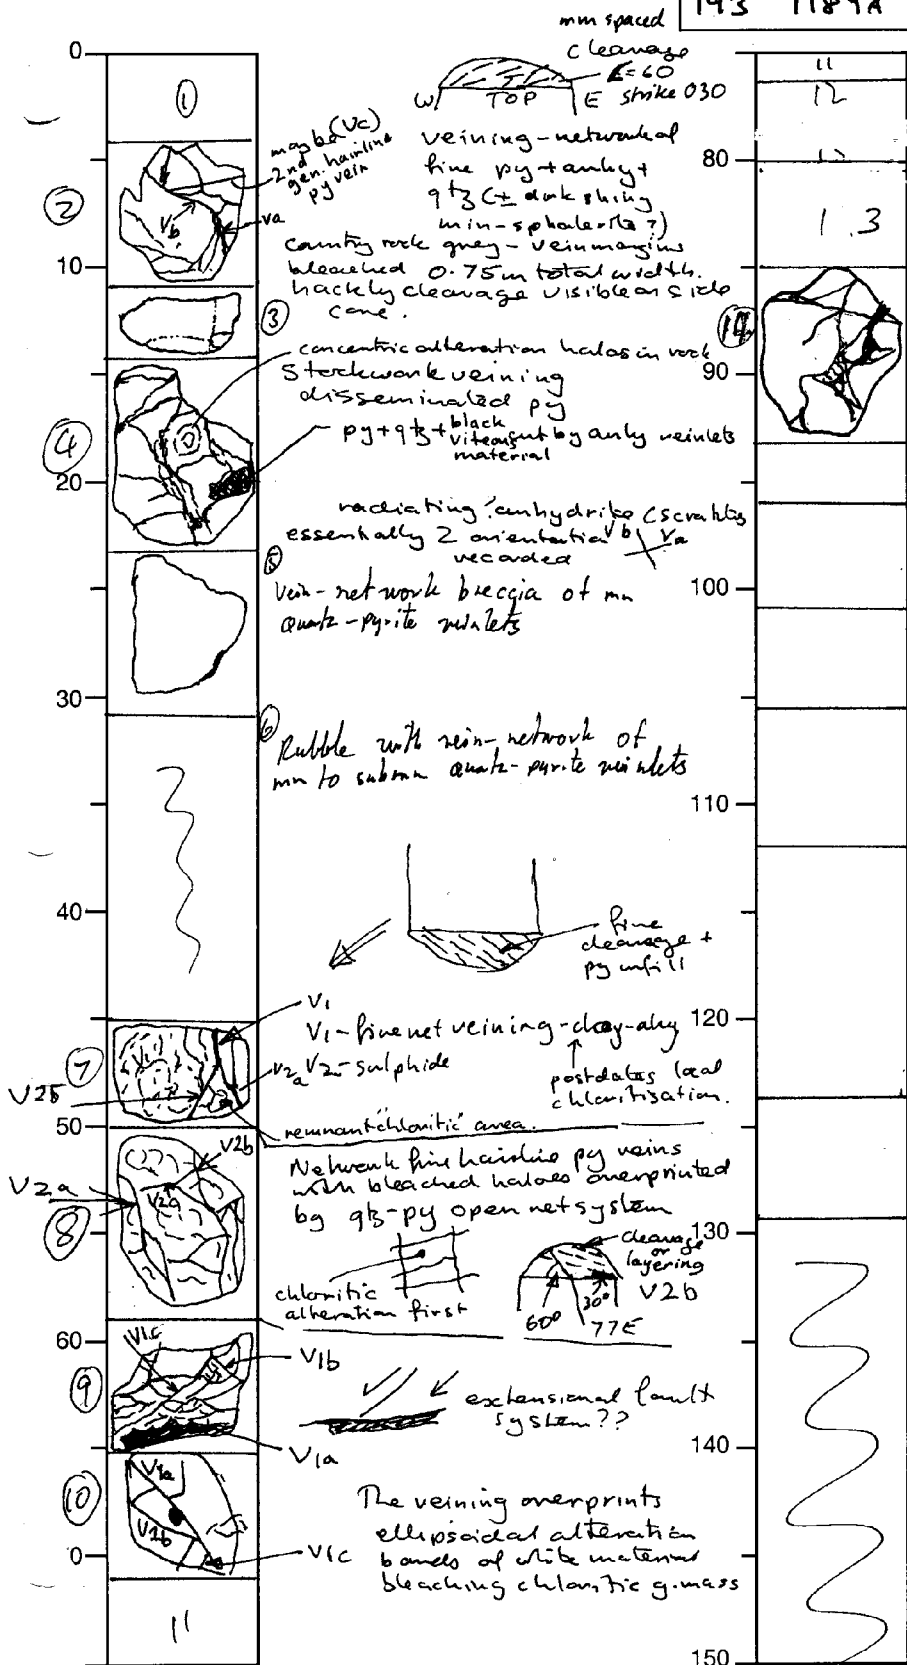 193 1189A
mm spaced
cleavage
∠=60
strike 030
W TOP E
0
1
maybe (Vc)
2nd
gen. hairline
py vein
2
Vb
Va
veining - network of
fine py + anhy +
qtz (± dark shiny
min - sphalerite ?)
country rock grey - vein margins
bleached 0.75m total width.
hackly cleavage visible on side
core.
10
3
concentric alteration halos in rock
Stockwork veining
disseminated py
py + qtz + black
vitreous
material
cut by anhy veinlets
4
20
radiating ?anhydrite
essentially 2 orientation Vb Va
recorded
5
vein-network breccia of mm
Quartz-pyrite veinlets
30
6
Rubble with vein-network of
mm to submm Quartz-pyrite veinlets
40
fine
cleavage +
py infill
V1
V1 - fine net veining - clay - ahy
postdates local
chloritisation.
7
V2a V2 - sulphide
V2b
remnant 'chloritic' area.
50
V2b
V2a
V2a
8
Network fine hairline py veins
with bleached haloes overprinted
by qtz-py open net system
chloritic
alteration first
cleavage
or
layering
V2b
60° 30°
77E
60
V1c
V1b
9
extensional fault
system??
V1a
10
V1a
V1b
V1c
The veining overprints
ellipsoidal alteration
bands of white material
bleaching chloritic g.mass
0
11
11
12
80
13
14
90
100
110
120
130
140
150